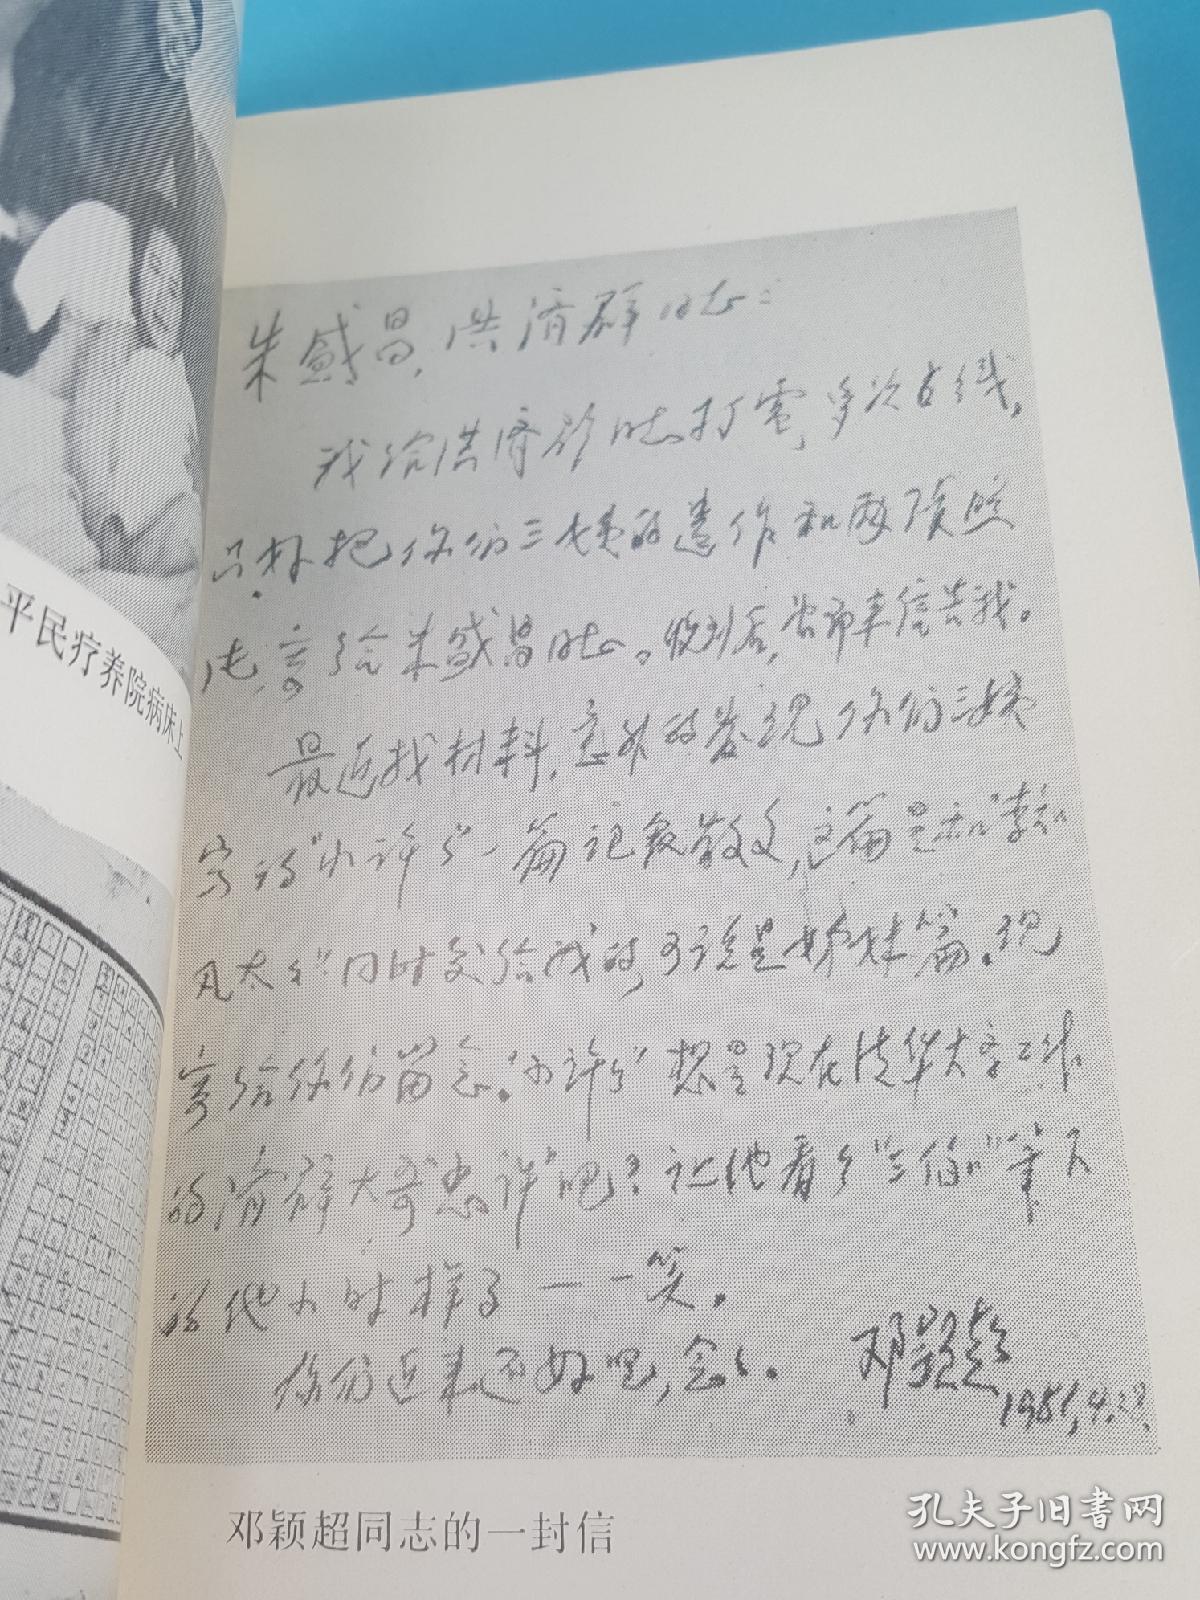 平民疗养院病床上
朱盛昌，洪济群同志：
我给洪济群同志打电，多次占线，
只好把你们三姨的遗作和两张照
片，寄给朱盛昌同志。收到后，当即来信告我。
最近找材料，意外的发现你们三姨
写的“小许”一篇记叙散文，这篇是和“李知
凡太太”同时交给我的，可说是姊妹篇。现
寄给你们留念。“小许”想是现在清华大学工作
的济群大哥忠许吧？让他看了“三姨”笔下
的他小时样子一一笑。
你们近来还好吧，念念。 邓颖超
1981，4.
邓颖超同志的一封信
孔夫子旧书网
www.kongfz.com